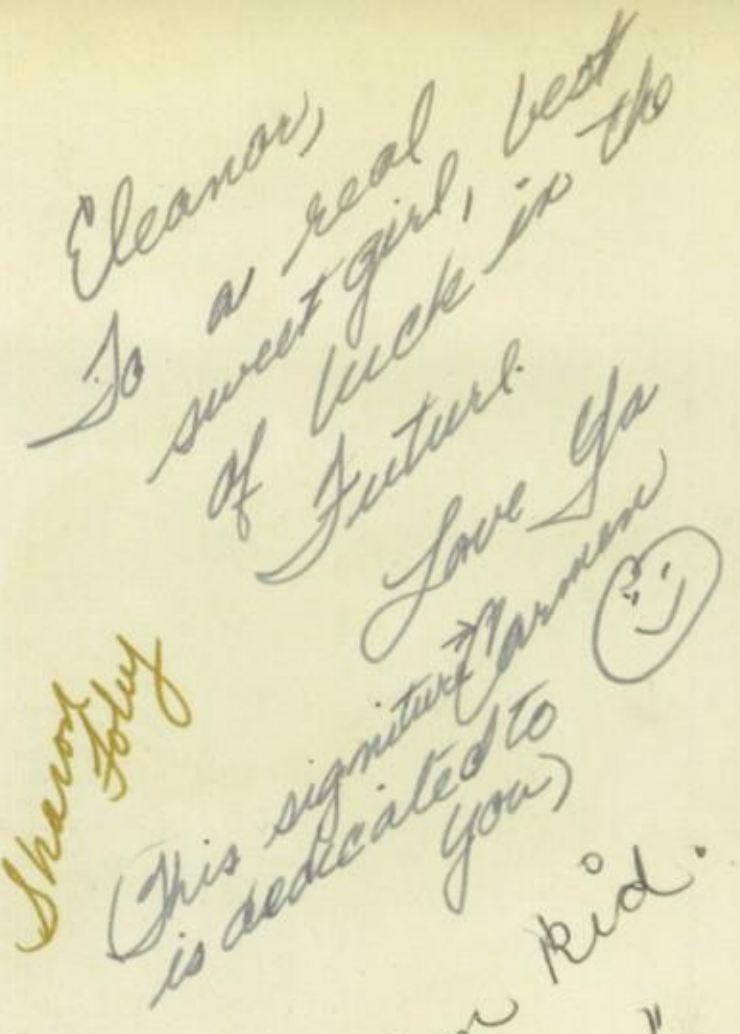 Eleanor,
To a real
sweet girl, best
of luck in the
Future.
Love Ya
Carmen
(This signiture
is dedicated to
you)
Sharon
Foley
Kid.
"